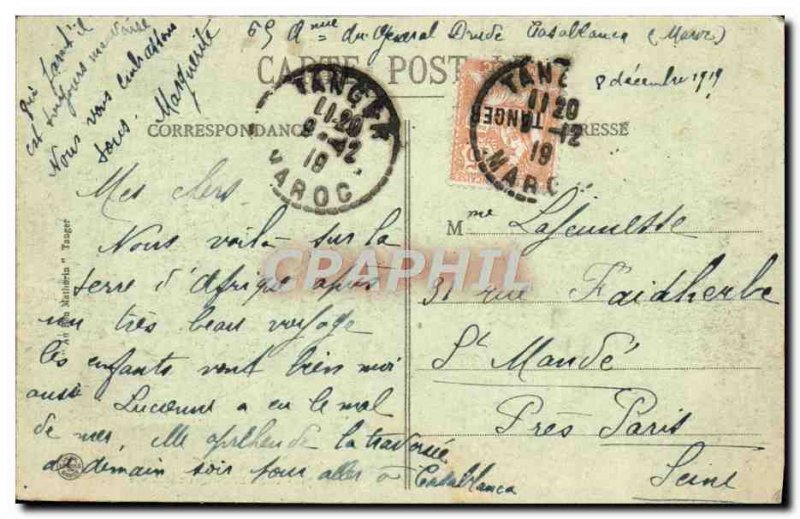 65 Anue du General Drude Casablanca (Maroc)
8 décembre 1919
CARTE POST
CORRESPONDANCE
TANGER
11-20
9-12
19
MAROC
TANGER
TANG
11-20
9-12
19
MAROC
RESSE
est toujours
Nous vous embrassons
tous. Marguerite
Mes chers.
Nous voilà sur la
terre d'Afrique après
un très beau voyage
les enfants vont bien moi
aussi Lucienne a eu le mal
de mer, elle apréhende la traversée
de demain soir pour aller à Casablanca
Mme Lajeunesse
31 rue Faidherbe
St Mandé
Près Paris
Seine
Tanger
CPAPHIL